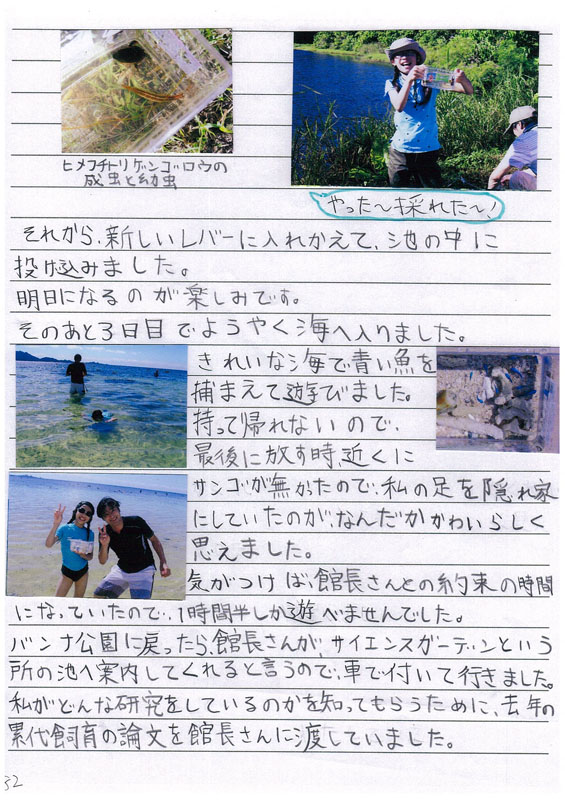 ヒメフチトリゲンゴロウの
成虫と幼虫
やった〜採れた〜!
それから、新しいレバーに入れかえて、池の中に
投げ込みました。
明日になるのが楽しみです。
そのあと3日目でようやく海へ入りました。
きれいな海で青い魚を
捕まえて遊びました。
持って帰れないので、
最後に放す時、近くに
サンゴが無かたので、私の足を隠れ家
にしていたのが、なんだかかわいらしく
思えました。
気がつけば、館長さんとの約束の時間
になっていたので、1時間半しか遊べませんでした。
バンナ公園に戻ったら、館長さんが、サイエンスガーデンという
所の池へ案内してくれると言うので、車で付いて行きました。
私がどんな研究をしているのかを知ってもらうために、去年の
累代飼育の論文を館長さんに渡していました。
32